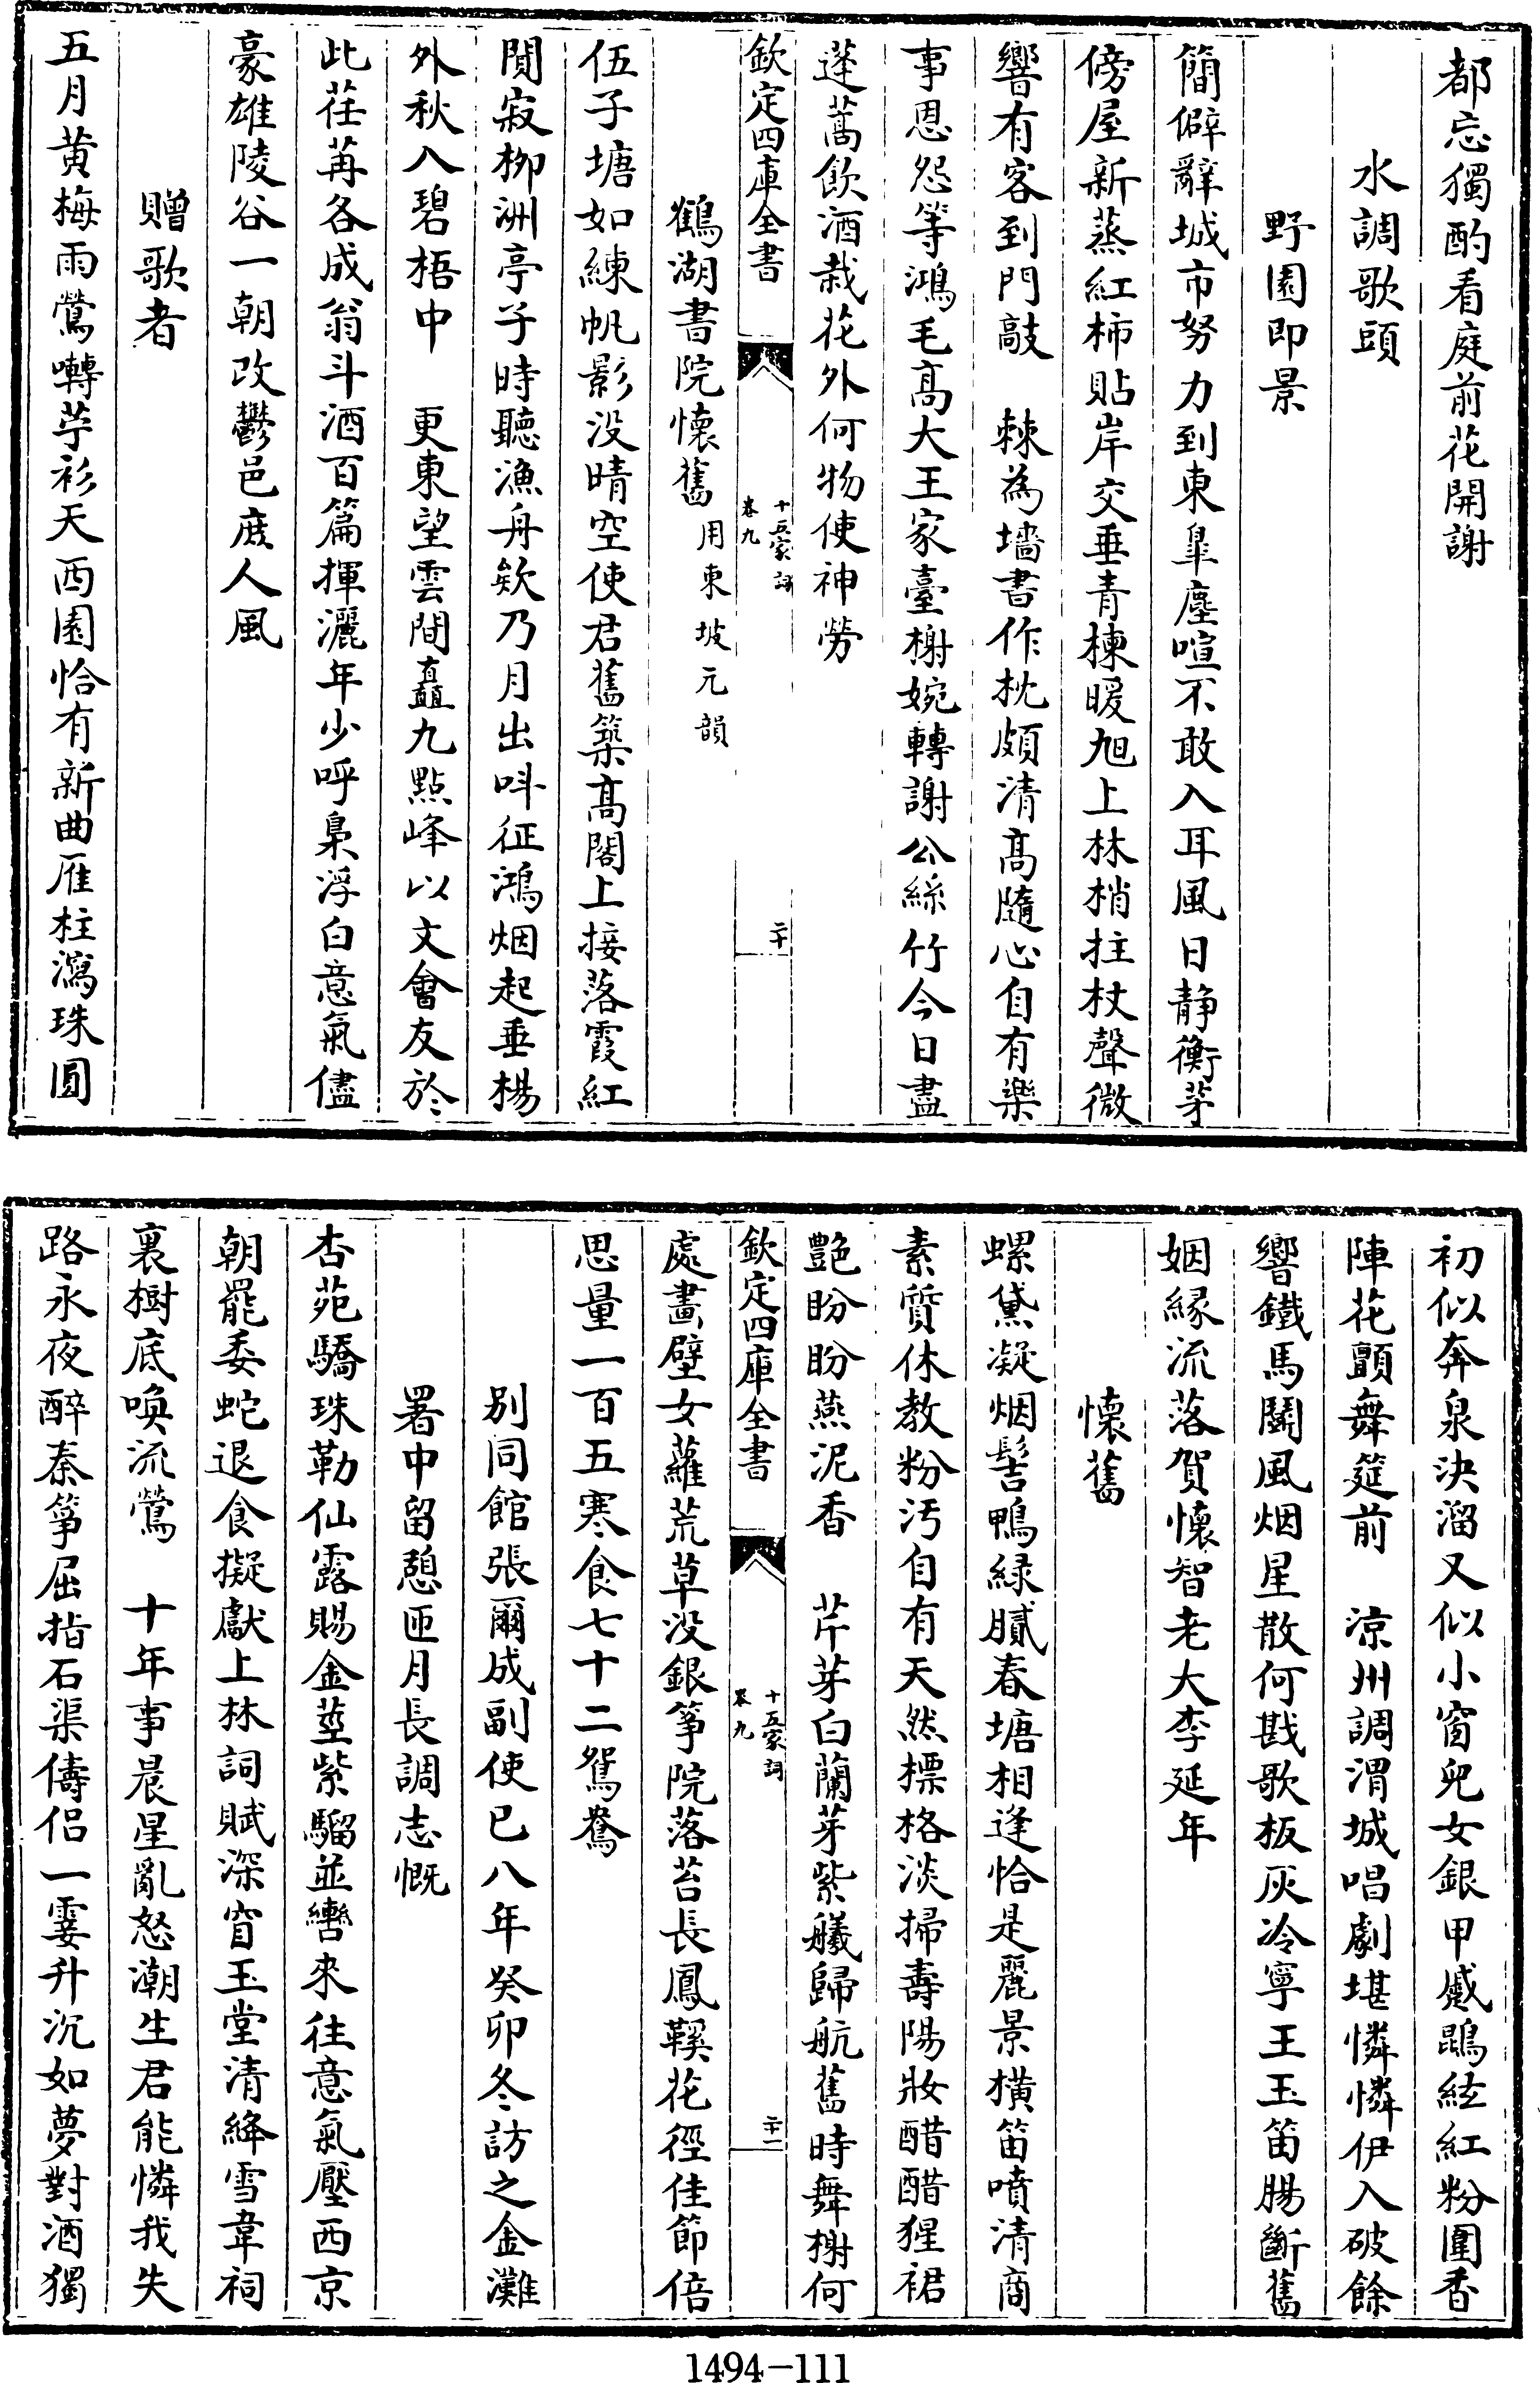 都忘獨酌看庭前花開謝
水調歌頭
野園即景
簡僻辭城市努力到東臯塵喧不敢入耳風日静衡茅
傍屋新蒸紅柿貼岸交垂青楝暖旭上林梢拄杖聲微
響有客到門敲　棘為墻書作枕頗清髙隨心自有樂
事恩怨等鴻毛髙大王家臺榭婉轉謝公絲竹今日盡
蓬蒿飲酒栽花外何物使神勞
欽定四庫全書
十五家詞
卷九
二十
鶴湖書院懷舊用東坡元韻
伍子塘如練帆影没晴空使君舊築髙閣上接落霞紅
閴寂栁洲亭子時聽漁舟欸乃月出呌征鴻烟起垂楊
外秋入碧梧中　更東望雲間矗九點峰以文會友於
此荏苒各成翁斗酒百篇揮灑年少呼梟浮白意氣儘
豪雄陵谷一朝改鬱邑庶人風
贈歌者
五月黄梅雨鶯囀苧衫天西園恰有新曲雁柱瀉珠圓
初似奔泉決溜又似小窗兒女銀甲慼鵾絃紅粉圍香
陣花顫舞筵前　涼州調渭城唱劇堪憐憐伊入破餘
響鐵馬鬭風烟星散何戡歌板灰冷寧王玉笛腸斷舊
姻緣流落賀懷智老大李延年
懷舊
螺黛凝烟髻鴨緑膩春塘相逢恰是麗景橫笛噴清商
素質休教粉汚自有天然標格淡掃壽陽妝醋醋猩裙
艷盼盼燕泥香　芹芽白蘭芽紫艤歸航舊時舞榭何
欽定四庫全書
十五家詞
卷九
二十一
處畫壁女蘿荒草没銀箏院落苔長鳳鞵花徑佳節倍
思量一百五寒食七十二鴛鴦
别同館張爾成副使已八年癸卯冬訪之金灘
署中留憩匝月長調志慨
杏苑驕珠勒仙露賜金莖紫騮並轡來往意氣壓西京
朝罷委蛇退食擬獻上林詞賦深窅玉堂清絳雪韋祠
裏樹底喚流鶯　十年事晨星亂怒潮生君能憐我失
路永夜醉秦箏屈指石渠儔侣一霎升沉如夢對酒獨
1494-111